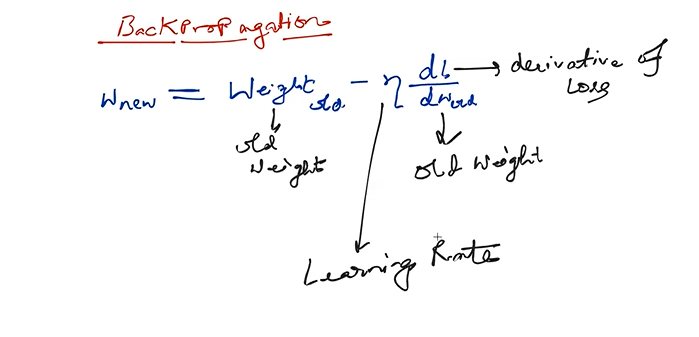 BackPropagation
Wnew = Weight old - η dL/dWold → derivative of Loss
old Weight
old Weight
Learning Rate